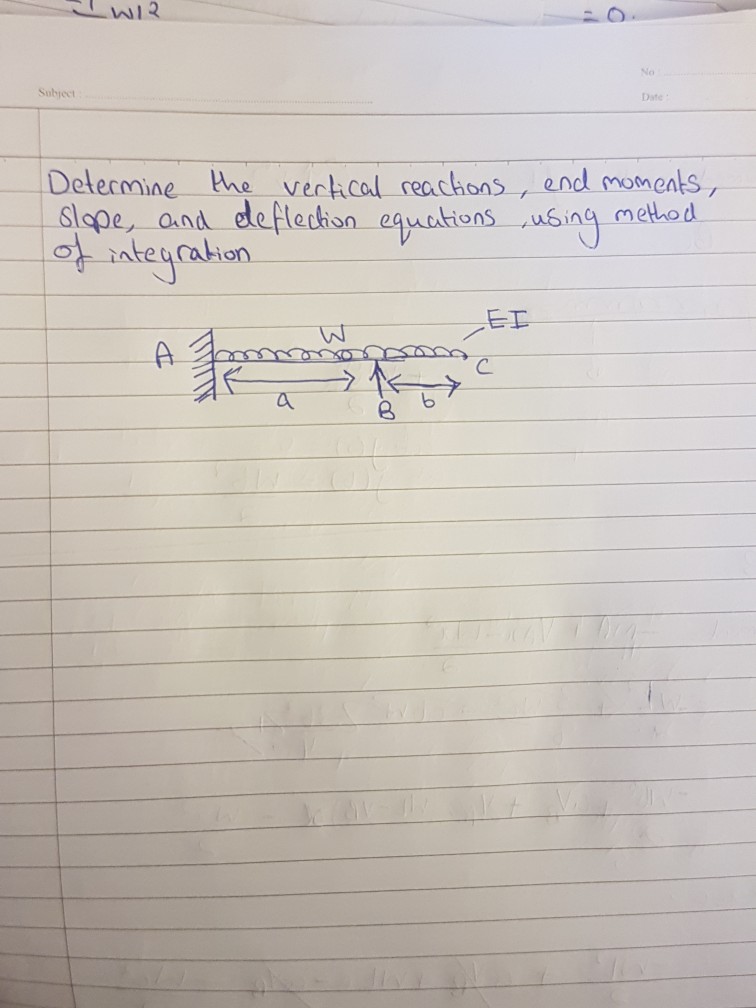 WL2
= 0.
No :
Subject :
Date :
Determine the vertical reactions, end moments,
slope, and deflection equations, using method
of integration
EI
W
A
C
a
B
b